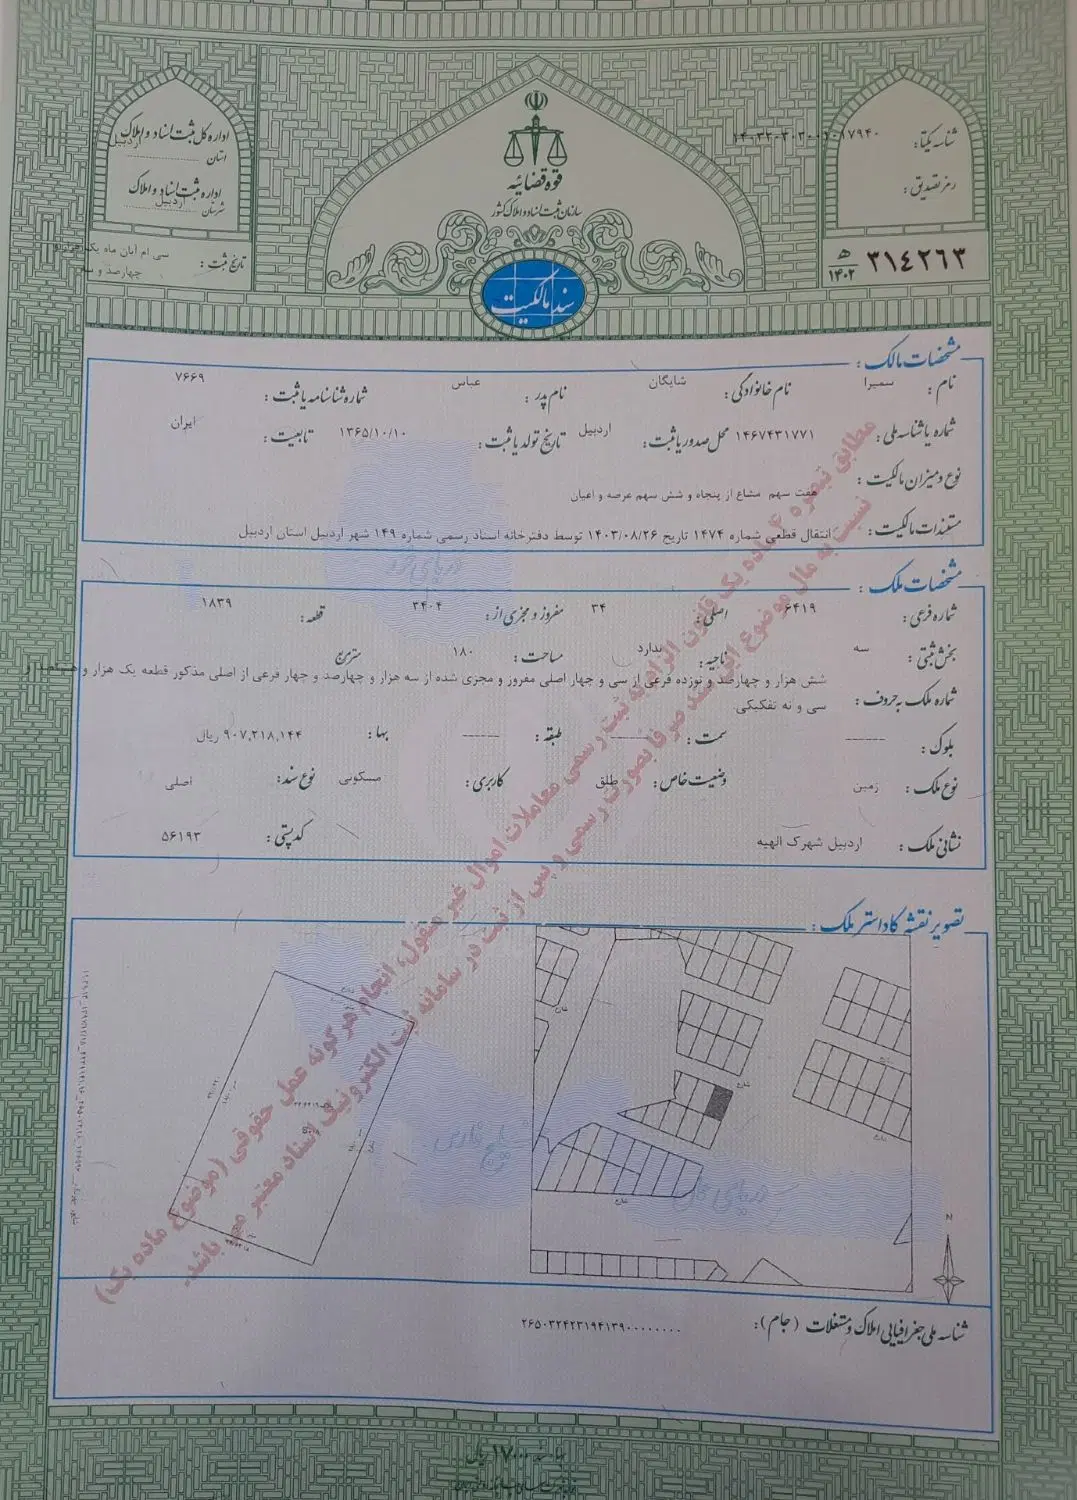 اداره کل ثبت اسناد و املاک
استان اردبیل
اداره ثبت اسناد و املاک
شهرستان اردبیل
تاریخ ثبت: سی ام آبان ماه یک هزار و
چهارصد و سه
قوه قضائیه
سازمان ثبت اسناد و املاک کشور
سند مالکیت
شناسه یکتا:
رمز تصدیق:
۳۱۴۲۶۳ ه ۱۴۰۲
مشخصات مالک:
نام: سمیرا نام خانوادگی: شایگان نام پدر: عباس شماره شناسنامه یا ثبت: ۷۶۶۹
شماره یا شناسه ملی: ۱۴۶۷۴۳۱۷۷۱ محل صدور یا ثبت: اردبیل تاریخ تولد یا ثبت: ۱۳۶۵/۱۰/۱۰ تابعیت: ایران
نوع و میزان مالکیت: هفت سهم مشاع از پنجاه و شش سهم عرصه و اعیان
مستندات مالکیت: انتقال قطعی شماره ۱۴۷۴ تاریخ ۱۴۰۳/۰۸/۲۶ توسط دفترخانه اسناد رسمی شماره ۱۴۹ شهر اردبیل استان اردبیل
مشخصات ملک:
شماره فرعی: ۶۴۱۹ اصلی: ۳۴ مفروز و مجزی از: ۳۴۰۴ قطعه: ۱۸۳۹
بخش ثبتی: سه ناحیه: ندارد مساحت: ۱۸۰ متر مربع
شماره ملک به حروف: شش هزار و چهارصد و نوزده فرعی از سی و چهار اصلی مفروز و مجزی شده از سه هزار و چهارصد و چهار فرعی از اصلی مذکور قطعه یک هزار و هشتصد و
سی و نه تفکیکی.
بلوک: ------ سمت: ------ طبقه: ------ بها: ۹۰۷,۲۱۸,۱۴۴ ریال
نوع ملک: زمین وضعیت خاص: طلق کاربری: مسکونی نوع سند: اصلی
نشانی ملک: اردبیل شهرک الهیه کد پستی: ۵۶۱۹۳
مطابق تبصره ۴ ماده یک قانون الزام به ثبت رسمی معاملات اموال غیر منقول؛ انجام هرگونه عمل حقوقی (موضوع ماده یک)
نسبت به مال موضوع این سند صرفا بصورت رسمی و پس از ثبت در سامانه ثبت الکترونیک اسناد معتبر می باشد.
تصویر نقشه کاداستر ملک:
N
شناسه ملی جغرافیایی املاک و مستغلات (جام): ۲۶۵۰۳۲۴۲۳۱۹۴۱۳۹۰۰۰۰۰۰۰۰
دریای خزر
خلیج فارس